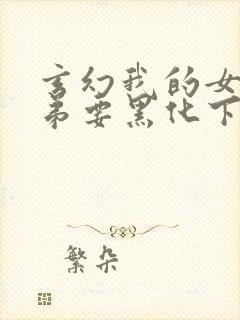 玄幻我的女
弟要黑化下
繁朵